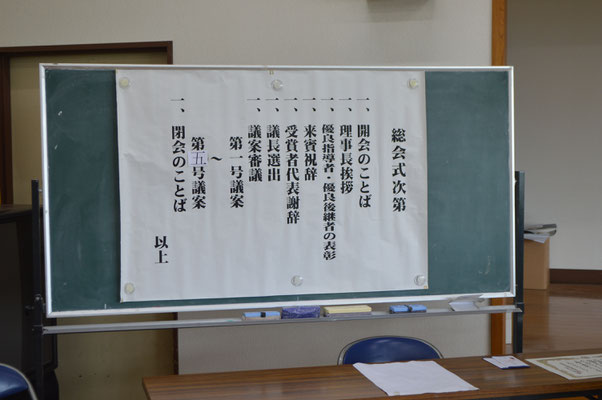 総会式次第
一、開会のことば
一、理事長挨拶
一、優良指導者・優良後継者の表彰
一、来賓祝辞
一、受賞者代表謝辞
一、議長選出
一、議案審議
第一号議案
～
第五号議案
一、閉会のことば
以上